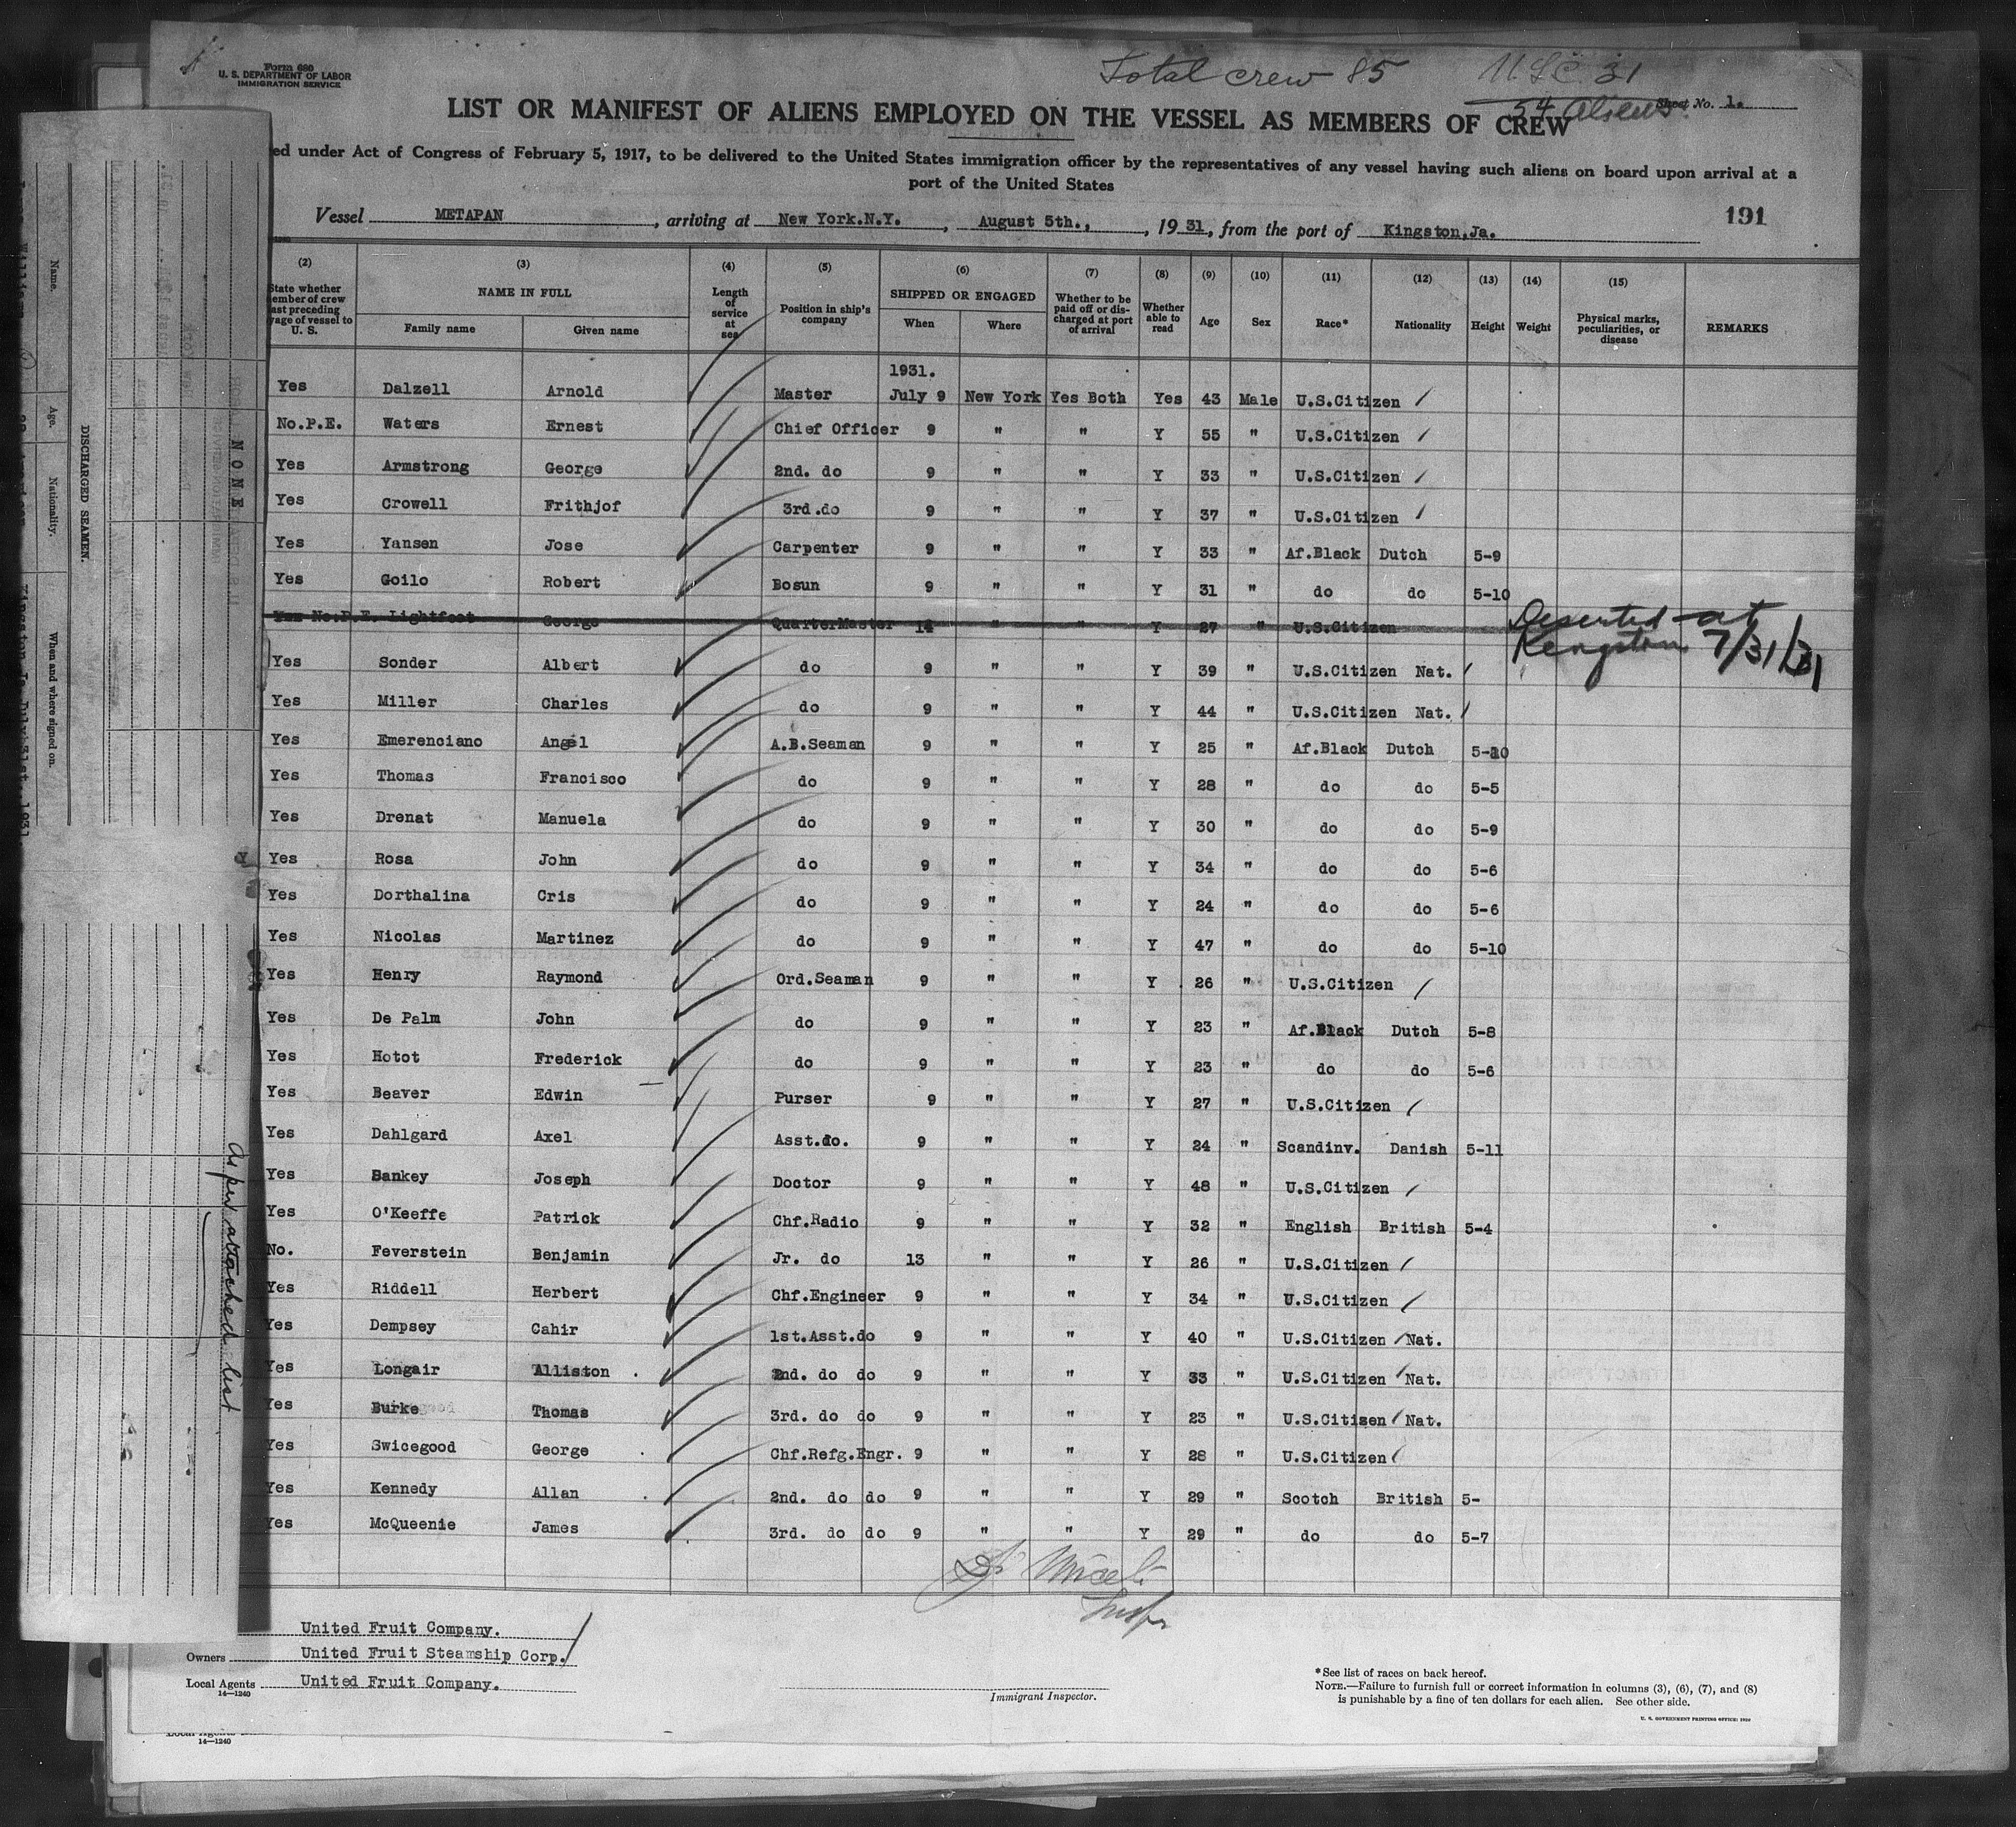 Form 680
U. S. DEPARTMENT OF LABOR
IMMIGRATION SERVICE
Total crew 85 U.S.C. 31
54 Aliens
Sheet No. 1.
LIST OR MANIFEST OF ALIENS EMPLOYED ON THE VESSEL AS MEMBERS OF CREW
ed under Act of Congress of February 5, 1917, to be delivered to the United States immigration officer by the representatives of any vessel having such aliens on board upon arrival at a
port of the United States
191
Vessel METAPAN, arriving at New York.N.Y., August 5th., 1931, from the port of Kingston,Ja.
(2) (3) (4) (5) (6) (7) (8) (9) (10) (11) (12) (13) (14) (15)
State whether member of crew last preceding voyage of vessel to U. S. NAME IN FULL Family name Given name Length of service at sea Position in ship's company SHIPPED OR ENGAGED When Where Whether to be paid off or discharged at port of arrival Whether able to read Age Sex Race* Nationality Height Weight Physical marks, peculiarities, or disease REMARKS
1931.
Yes Dalzell Arnold Master July 9 New York Yes Both Yes 43 Male U.S.Citizen
No.P.E. Waters Ernest Chief Officer 9 " " Y 55 " U.S.Citizen
Yes Armstrong George 2nd. do 9 " " Y 33 " U.S.Citizen
Yes Crowell Frithjof 3rd.do 9 " " Y 37 " U.S.Citizen
Yes Yansen Jose Carpenter 9 " " Y 33 " Af.Black Dutch 5-9
Yes Goilo Robert Bosun 9 " " Y 31 " do do 5-10
Yes No.P.E. Lightfoot George QuarterMaster 14 " " Y 27 " U.S.Citizen Deserted at
Kingston 7/31/31
Yes Sonder Albert do 9 " " Y 39 " U.S.Citizen Nat.
Yes Miller Charles do 9 " " Y 44 " U.S.Citizen Nat.
Yes Emerenciano Angel A.B.Seaman 9 " " Y 25 " Af.Black Dutch 5-10
Yes Thomas Francisco do 9 " " Y 28 " do do 5-5
Yes Drenat Manuela do 9 " " Y 30 " do do 5-9
Yes Rosa John do 9 " " Y 34 " do do 5-6
Yes Dorthalina Cris do 9 " " Y 24 " do do 5-6
Yes Nicolas Martinez do 9 " " Y 47 " do do 5-10
Yes Henry Raymond Ord.Seaman 9 " " Y 26 " U.S.Citizen
Yes De Palm John do 9 " " Y 23 " Af.Black Dutch 5-8
Yes Hotot Frederick do 9 " " Y 23 " do do 5-6
Yes Beaver Edwin Purser 9 " " Y 27 " U.S.Citizen
Yes Dahlgard Axel Asst.do. 9 " " Y 24 " Scandinv. Danish 5-11
Yes Sankey Joseph Doctor 9 " " Y 48 " U.S.Citizen
Yes O'Keeffe Patrick Chf.Radio 9 " " Y 32 " English British 5-4
No. Feverstein Benjamin Jr. do 13 " " Y 26 " U.S.Citizen
Yes Riddell Herbert Chf.Engineer 9 " " Y 34 " U.S.Citizen
Yes Dempsey Cahir 1st.Asst.do 9 " " Y 40 " U.S.Citizen Nat.
Yes Longair Alliston 2nd. do do 9 " " Y 33 " U.S.Citizen Nat.
Yes Burke Thomas 3rd. do do 9 " " Y 23 " U.S.Citizen Nat.
Yes Swicegood George Chf.Refg.Engr. 9 " " Y 28 " U.S.Citizen
Yes Kennedy Allan 2nd. do do 9 " " Y 29 " Scotch British 5-
Yes McQueenie James 3rd. do do 9 " " Y 29 " do do 5-7
United Fruit Company.
Owners United Fruit Steamship Corp.
Local Agents United Fruit Company.
14—1240
Immigrant Inspector.
*See list of races on back hereof.
NOTE.—Failure to furnish full or correct information in columns (3), (6), (7), and (8)
is punishable by a fine of ten dollars for each alien. See other side.
U. S. GOVERNMENT PRINTING OFFICE: 1930
14—1240
Name. Age. Nationality. When and where signed on.
DISCHARGED SEAMEN.
NONE
As per attached list